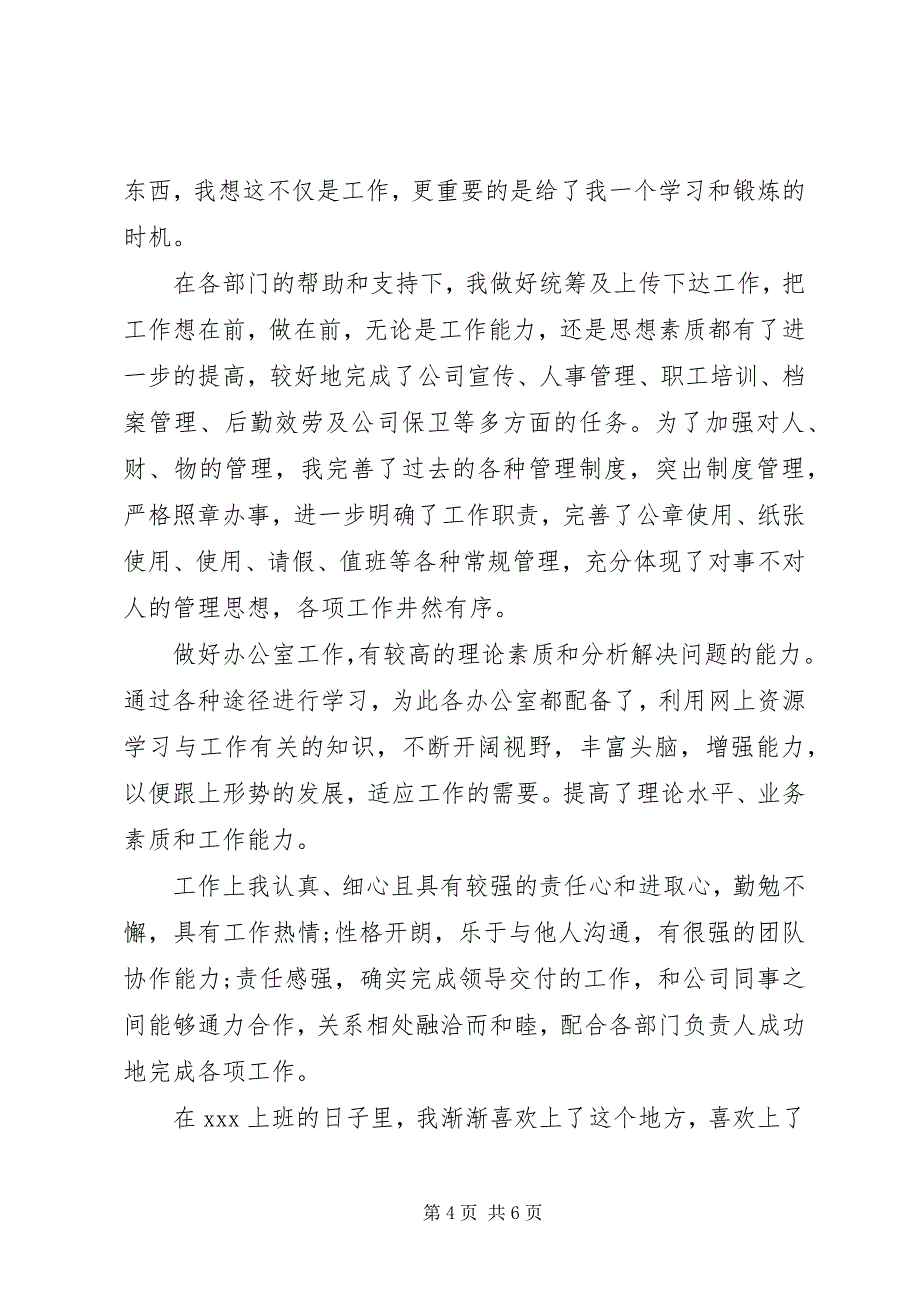 东西，我想这不仅是工作，更重要的是给了我一个学习和锻炼的
时机。
在各部门的帮助和支持下，我做好统筹及上传下达工作，把
工作想在前，做在前，无论是工作能力，还是思想素质都有了进
一步的提高，较好地完成了公司宣传、人事管理、职工培训、档
案管理、后勤效劳及公司保卫等多方面的任务。为了加强对人、
财、物的管理，我完善了过去的各种管理制度，突出制度管理，
严格照章办事，进一步明确了工作职责，完善了公章使用、纸张
使用、使用、请假、值班等各种常规管理，充分体现了对事不对
人的管理思想，各项工作井然有序。
做好办公室工作,有较高的理论素质和分析解决问题的能力。
通过各种途径进行学习，为此各办公室都配备了，利用网上资源
学习与工作有关的知识，不断开阔视野，丰富头脑，增强能力，
以便跟上形势的发展，适应工作的需要。提高了理论水平、业务
素质和工作能力。
工作上我认真、细心且具有较强的责任心和进取心，勤勉不
懈，具有工作热情;性格开朗，乐于与他人沟通，有很强的团队
协作能力;责任感强，确实完成领导交付的工作，和公司同事之
间能够通力合作，关系相处融洽而和睦，配合各部门负责人成功
地完成各项工作。
在 xxx 上班的日子里，我渐渐喜欢上了这个地方，喜欢上了
第 4 页 共 6 页